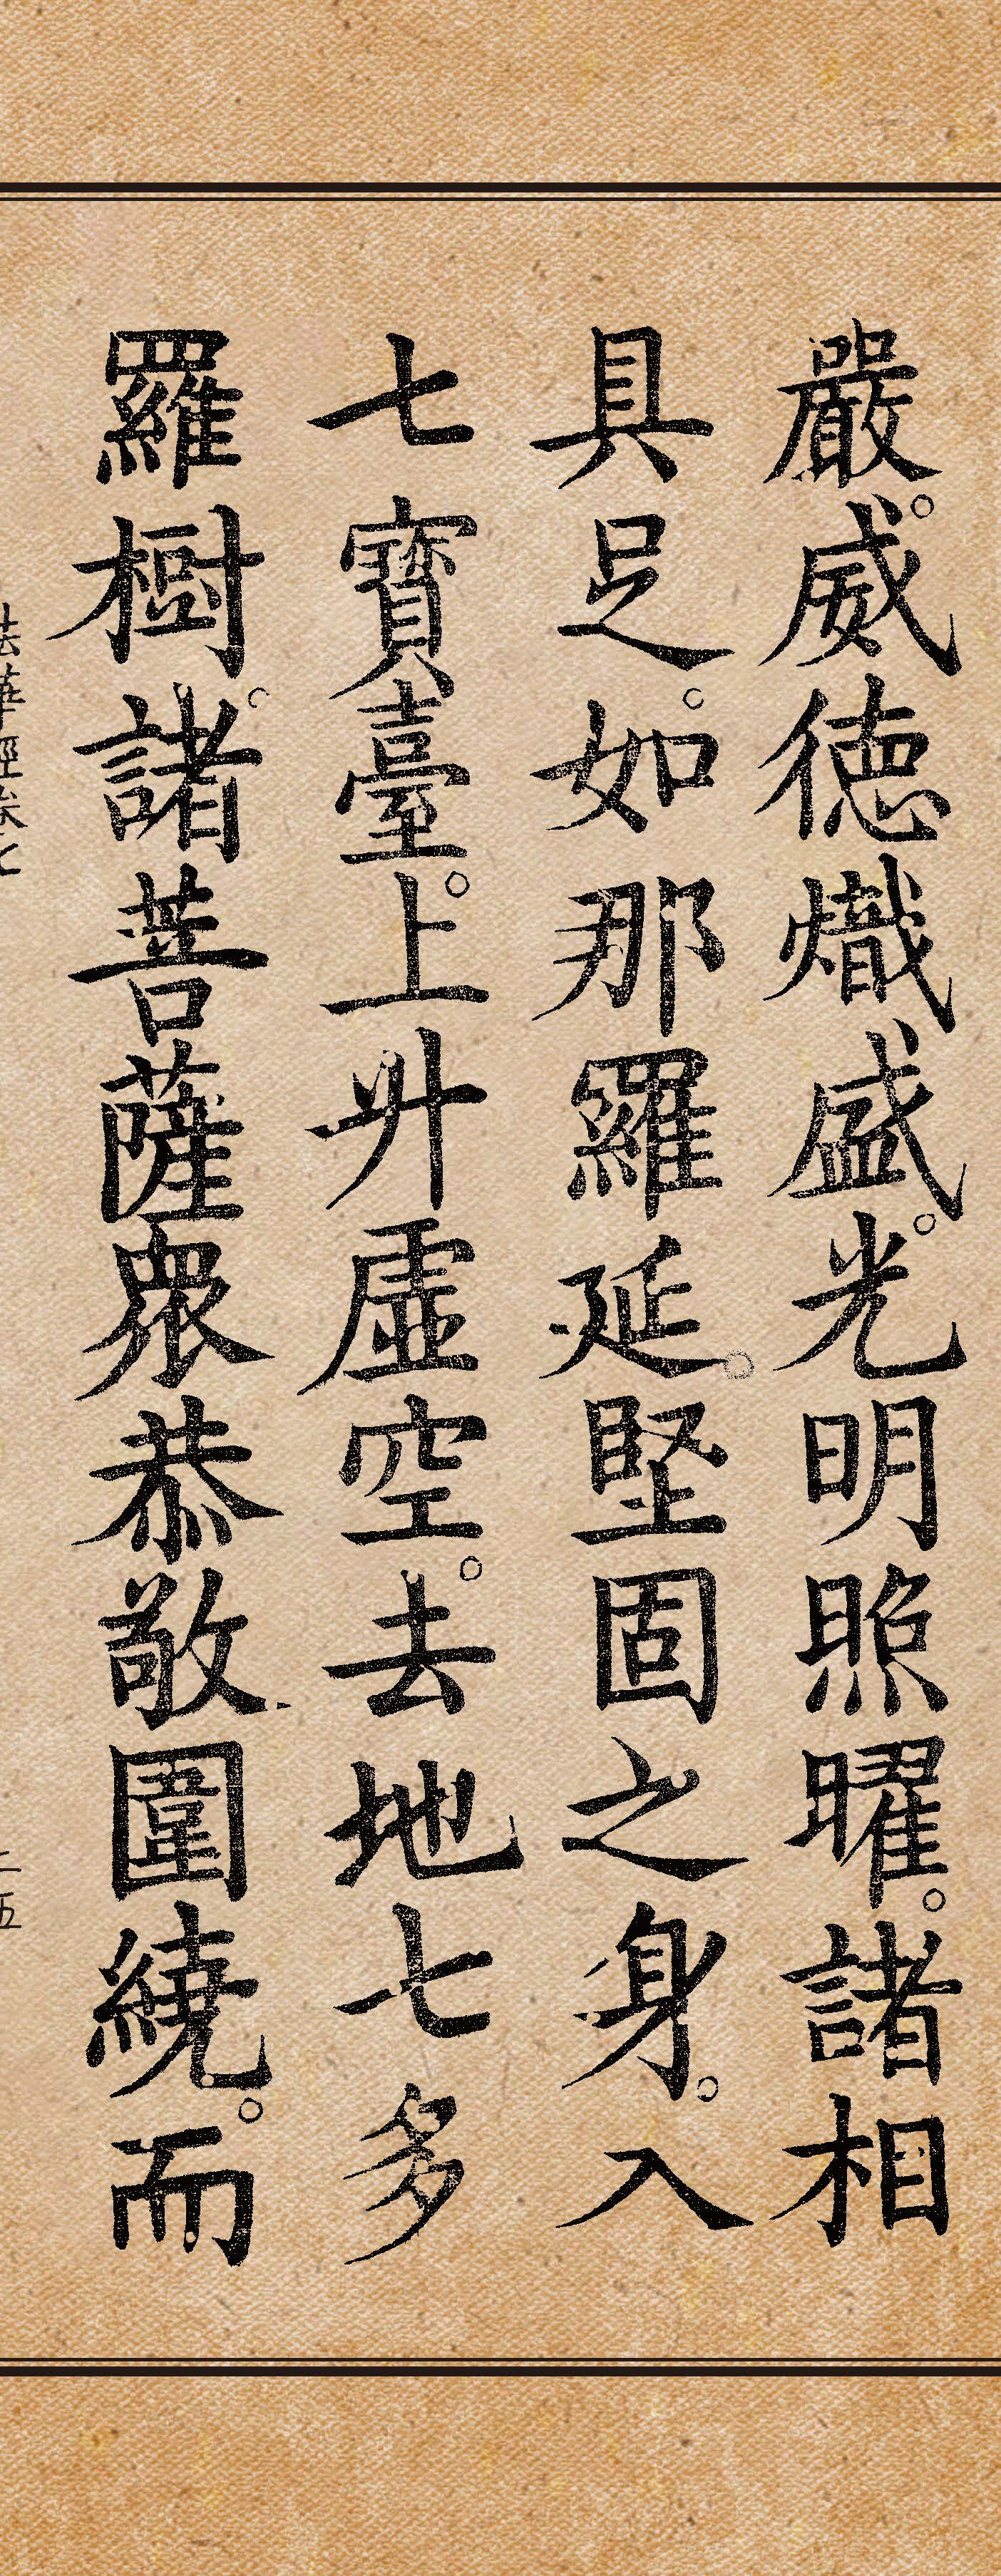 嚴。威德熾盛。光明照曜。諸相
具足。如那羅延。堅固之身。入
七寶臺。上升虛空。去地七多
羅樹。諸菩薩眾恭敬圍繞。而
法華經卷七
二五